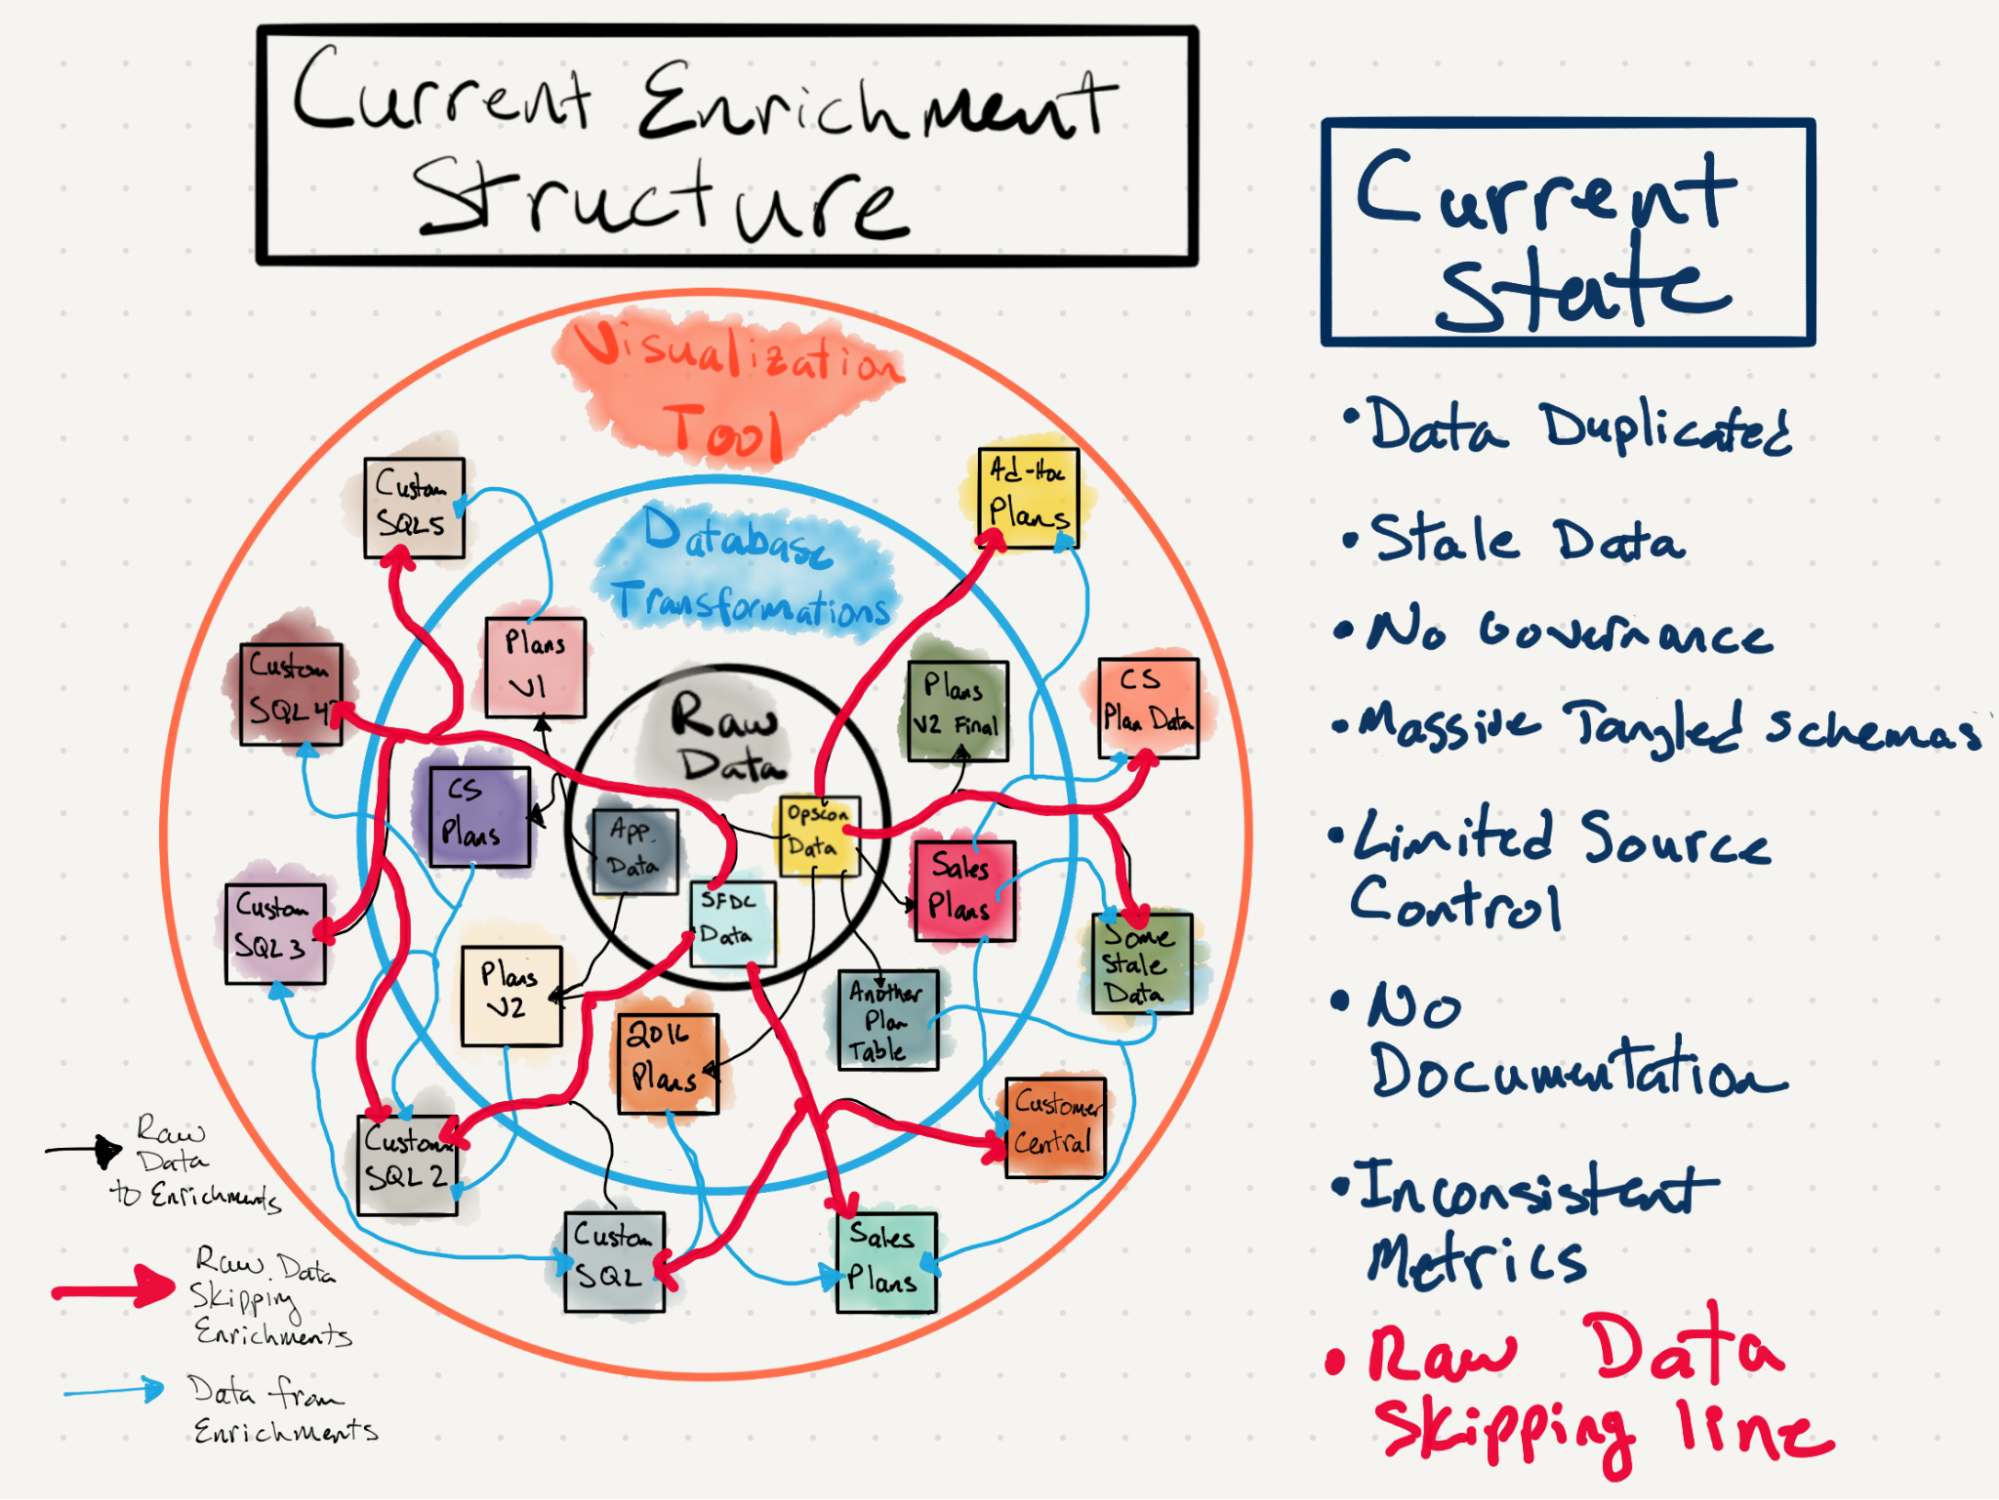 Current Enrichment
Structure
Current
State
Visualization
Tool
Database
Transformations
Raw
Data
Custom
SQL5
Ad-Hoc
Plans
Custom
SQL 4?
Plans
V1
Plans
V2 Final
CS
Plan Data
CS
Plans
App.
Data
Opscon
Data
SFDC
Data
Sales
Plans
Custom
SQL 3
Plans
V2
2016
Plans
Another
Plan
Table
Some
Stale
Data
Customer
Central
Custom
SQL 2
Custom
SQL
Sales
Plans
Raw
Data
to Enrichments
Raw Data
Skipping
Enrichments
Data from
Enrichments
• Data Duplicated
• Stale Data
• No Governance
• Massive Tangled Schemas
• Limited Source
Control
• No
Documentation
• Inconsistent
Metrics
• Raw Data
Skipping line